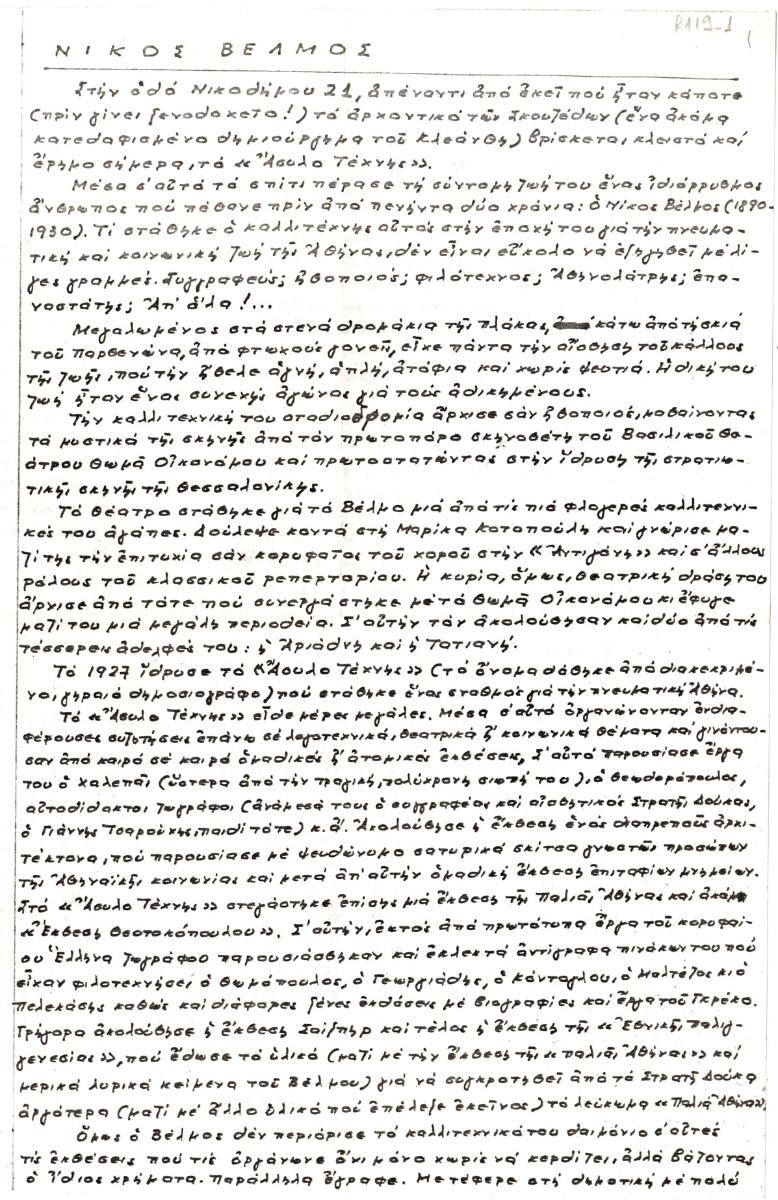 R119_1
(
ΝΙΚΟΣ ΒΕΛΜΟΣ
Στήν ὁδό Νικοδήμου 21, ἀπέναντι ἀπό ἐκεῖ πού ἦταν κάποτε
(πρίν γίνει ξενοδοχεῖο!) τό ἀρχοντικό τῶν Σκουζέδων (ἕνα ἀκόμα
κατεδαφισμένο δημιούργημα τοῦ Κλεάνθη) βρίσκεται, κλειστό καί
ἔρημο σήμερα, τό «Ἄσυλο Τέχνης».
Μέσα σ'αὐτό τό σπίτι πέρασε τή σύντομη ζωή του ἕνας ἰδιόρρυθμος
ἄνθρωπος πού πέθανε πρίν ἀπό πενήντα δύο χρόνια: ὁ Νίκος Βέλμος (1890-
1930). Τί στάθηκε ὁ καλλιτέχνης αὐτός στήν ἐποχή του γιά τήν πνευμα-
τική καί κοινωνική ζωή τῆς Ἀθήνας, δέν εἶναι εὔκολο νά ἐξηγηθεῖ μέ λί-
γες γραμμές. Συγγραφεύς; ἠθοποιός; φιλότεχνος; Ἀθηνολάτρης; ἐπα-
ναστάτης; Ἀπ' ὅλα!...
Μεγαλωμένος στά στενά δρομάκια τῆς Πλάκας, κάτω ἀπό τή σκιά
τοῦ Παρθενώνα, ἀπό φτωχούς γονεῖς, εἶχε πάντα τήν αἴσθηση τοῦ κάλλους
τῆς ζωῆς, πού τήν ἤθελε ἁγνή, ἁπλή, ἀτόφια καί χωρίς ψευτιά. Ἡ δική του
ζωή ἦταν ἕνας συνεχής ἀγώνας γιά τούς ἀδικημένους.
Τήν καλλιτεχνική του σταδιοδρομία ἄρχισε σάν ἠθοποιός, μαθαίνοντας
τά μυστικά τῆς σκηνῆς ἀπό τόν πρωτοπόρο σκηνοθέτη τοῦ Βασιλικοῦ Θε-
άτρου Θωμᾶ Οἰκονόμου καί πρωτοστατώντας στήν ἵδρυση τῆς στρατιω-
τικῆς σκηνῆς τῆς Θεσσαλονίκης.
Τό θέατρο στάθηκε γιά τό Βέλμο μιά ἀπό τίς πιό φλογερές καλλιτεχνι-
κές του ἀγάπες. Δούλεψε κοντά στή Μαρίκα Κοτοπούλη καί γνώρισε μα-
ζί της τήν ἐπιτυχία σάν κορυφαῖος τοῦ χοροῦ στήν «Ἀντιγόνη» καί σ'ἄλλους
ρόλους τοῦ κλασσικοῦ ρεπερτορίου. Ἡ κυρία, ὅμως, θεατρική δράση του
ἄρχισε ἀπό τότε πού συνεργάστηκε μέ τό Θωμᾶ Οἰκονόμου κι ἔφυγε
μαζί του μιά μεγάλη περιοδεία. Σ'αὐτήν τόν ἀκολούθησαν καί δύο ἀπό τίς
τέσσερεις ἀδελφές του: ἡ Ἀριάδνη καί ἡ Τατιανή.
Τό 1927 ἵδρυσε τό «Ἄσυλο Τέχνης» (τό ὄνομα δόθηκε ἀπό διακεκριμέ-
νο, γηραιό δημοσιογράφο) πού στάθηκε ἕνας σταθμός γιά τήν πνευματική Ἀθήνα.
Τό «Ἄσυλο Τέχνης» εἶδε μέρες μεγάλες. Μέσα σ'αὐτό ὀργανώνονταν ἐνδια-
φέρουσες συζητήσεις ἐπάνω σέ λογοτεχνικά, θεατρικά ἤ κοινωνικά θέματα καί γινόντου-
σαν ἀπό καιρό σέ καιρό ὁμαδικές ἤ ἀτομικές ἐκθέσεις. Σ'αὐτό παρουσίασε ἔργα
του ὁ Χαλεπᾶς (ὕστερα ἀπό τήν τραγική, πολύχρονη σιωπή του), ὁ Θεοδωρόπουλος,
αὐτοδίδακτοι ζωγράφοι (ἀνάμεσά τους ὁ συγγραφέας καί αἰσθητικός Στρατῆς Δούκας,
ὁ Γιάννης Τσαρούχης, παιδί τότε) κ.ἄ. Ἀκολούθησε ἡ ἔκθεση ἑνός διαπρεποῦς ἀρχι-
τέκτονα, πού παρουσίασε μέ ψευδώνυμο σατυρικά σκίτσα γνωστῶν προσώπων
τῆς Ἀθηναϊκῆς κοινωνίας καί μετά ἀπ'αὐτήν ὁμαδική ἔκθεση ἐπιταφίων μνημείων.
Στό «Ἄσυλο Τέχνης» στεγάστηκε ἐπίσης μιά ἔκθεση τῆς Παλιᾶς Ἀθήνας καί ἀκόμη
«Ἔκθεση Θεοτοκόπουλου». Σ'αὐτήν, ἐκτός ἀπό πρωτότυπα ἔργα τοῦ κορυφαί-
ου Ἕλληνα ζωγράφου παρουσιάσθηκαν καί ἐκλεκτά ἀντίγραφα πινάκων του πού
εἶχαν φιλοτεχνήσει ὁ Θωμόπουλος, ὁ Γεωργιάδης, ὁ Κόντογλου, ὁ Μαλτέζος κι ὁ
Πελεκάσης καθώς καί διάφορες ξένες ἐκδόσεις μέ βιογραφίες καί ἔργα τοῦ Γκρέκο.
Γρήγορα ἀκολούθησε ἡ ἔκθεση Σαίξπηρ καί τέλος ἡ ἔκθεση τῆς «Ἐθνικῆς παλιγ-
γενεσίας», πού ἔδωσε τό ὑλικό (μαζί μέ τήν ἔκθεση τῆς «Παλιᾶς Ἀθήνας» καί
μερικά λυρικά κείμενα τοῦ Βέλμου) γιά νά συγκροτηθεῖ ἀπό τό Στρατῆ Δούκα
ἀργότερα (μαζί μέ ἄλλο ὑλικό πού ἐπέλεξε ἐκεῖνος) τό λεύκωμα «Παλιά Ἀθήνα».
Ὅμως ὁ Βέλμος δέν περιόρισε τό καλλιτεχνικό του δαιμόνιο σ'αὐτές
τίς ἐκθέσεις πού τίς ὀργάνωνε ὄχι μόνο χωρίς νά κερδίζει, ἀλλά βάζοντας
ὁ ἴδιος χρήματα. Παράλληλα ἔγραφε. Μετέφερε στή δημοτική μέ πολύ